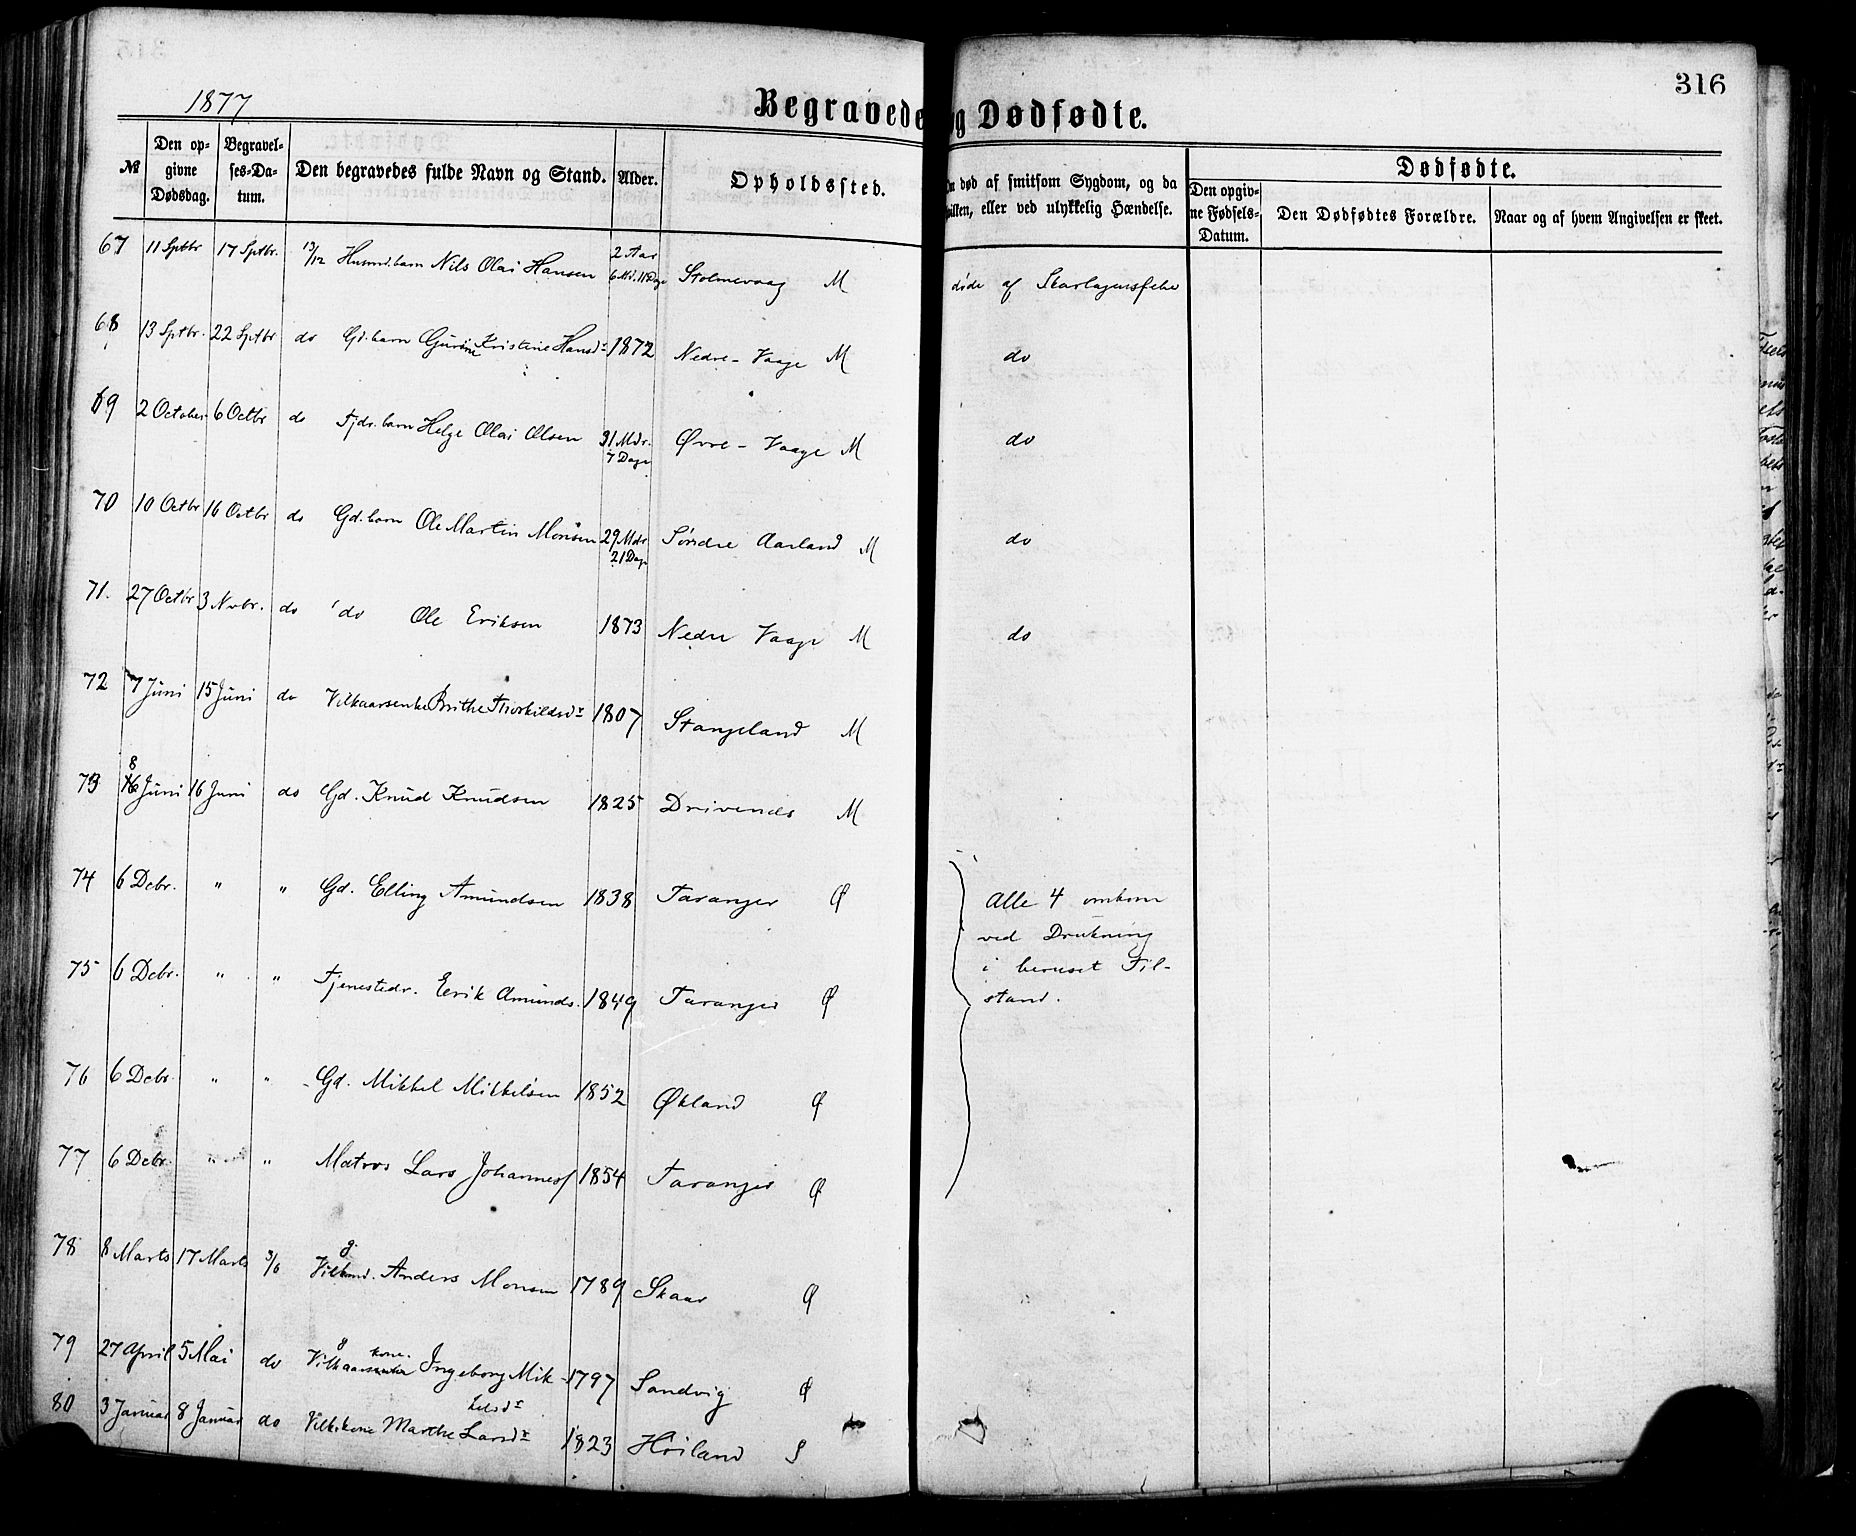 316
1877
Begravede og Dødfødte.
№ Den opgivne Dødsdag. Begravelses-Datum. Den begravedes fulde Navn og Stand. Alder. Opholdssted. død af smitsom Sygdom, og da hvilken, eller ved ulykkelig Hændelse. Dødfødte.
Den opgivne Fødsels-Datum. Den Dødfødtes Forældre. Naar og af hvem Angivelsen er skeet.
67 11 Sptbr 17 Sptbr. 13/12 Husmd. barn Nils Olai Hansen 2 Aar 6 Md. 11 Dage Stolmevaag M døde af Skarlagensfeber
68 13 Sptbr. 22 Sptbr do Gd. barn Gurine Kristine Hansdr 1872 Nedre-Vaage M do
69 2 October 6 Octbr do Tjdr. barn Helge Olai Olsen 31 Mdr. 7 Dage Øvre-Vaage M do
70 10 Octbr 16 Octbr do Gd. barn Ole Martin Monsen 29 Mdr 21 Dage Søndre Aarland M do
71. 27 Octbr 3 Novbr. do do Ole Eriksen 1873 Nedre Vaage M do
72 7 Juni 15 Juni do Vilkaarsenke Brithe Thorkildsdr 1807 Stangeland M
73 8 Juni 16 Juni do Gd. Knud Knudsen 1825 Drivenes M
74 6 Debr. " " Gd. Elling Amundsen 1838 Taranger Ø Alle 4 omkom
ved Drukning
i beruset Til-
stand.
75 6 Debr. " " Tjenestedr. Eerik Amunds. 1849 Taranger Ø
76 6 Debr " " Gd. Mikkel Mikkelsen 1852 Økland Ø
77 6 Debr. " " Matros Lars Johannesf 1854 Taranger Ø
78 8 Marts 17 Marts 3/6 g. Vilkmd. Anders Monsen 1789 Skaar Ø
79 27 April 5 Mai do g Vilkaarskone. Ingeborg Mik-
kelsdr 1797 Sandvig Ø
80 3 Januar 8 Januar do Vilkskone Marthe Larsdr 1823 Høiland S